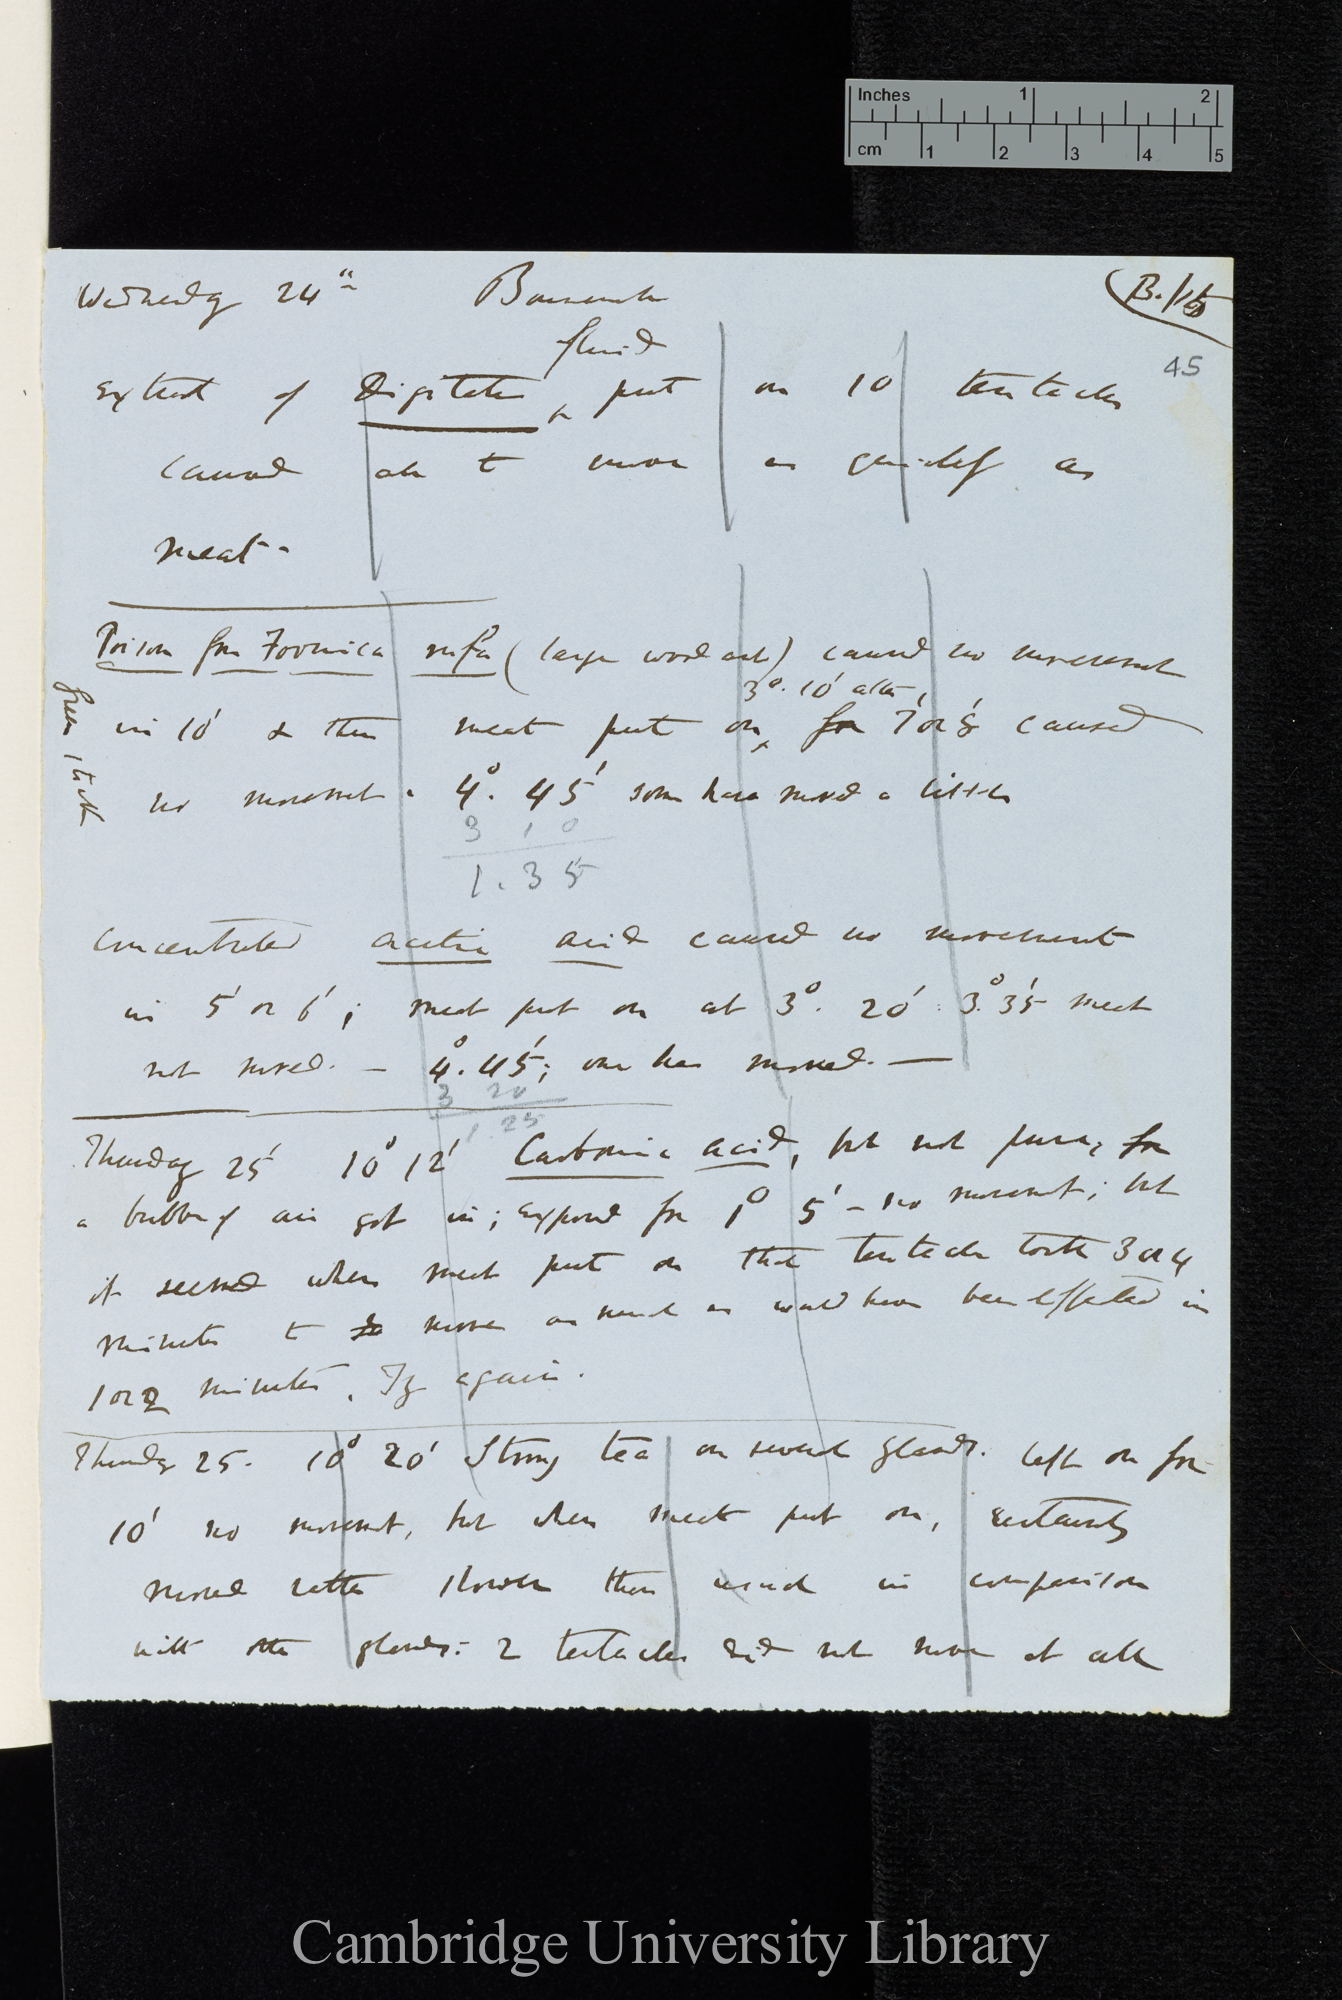 Inches 1 2
cm 1 2 3 4 5
Wednesday 24th Bournemouth B. 15
45
fluid
Extract of Digitalis ^ put on 10 tentacles
caused all to move as quickly as
meat.
Poison from Formica rufa (large wood ant) caused no movement
3°. 10' after,
in 10' & then meat put on ^ for 7 or 8' caused
no movement. 4°. 45' some have moved a little
3 10
1. 35
Concentrated acetic acid caused no movement
in 5' or 6'; meat put on at 3°. 20' : 3°. 35' meat
not moved. — 4°. 45'; one has moved. —
3 20
1. 25
Thursday 25' 10° 12' Carbonic acid, but not pure, for
a bubble of air got in; exposed for 1° 5' — no movement; but
it seemed when meat put on that tentacles took 3 or 4
minutes to move as much as would have been effected in
1 or 2 minutes. Try again.
Thursday 25. 10° 20' Strong tea on several glands. left on for
10' no movement, but when meat put on, certainly
moved rather slower than usual in comparison
with other glands. — 2 tentacles did not move at all